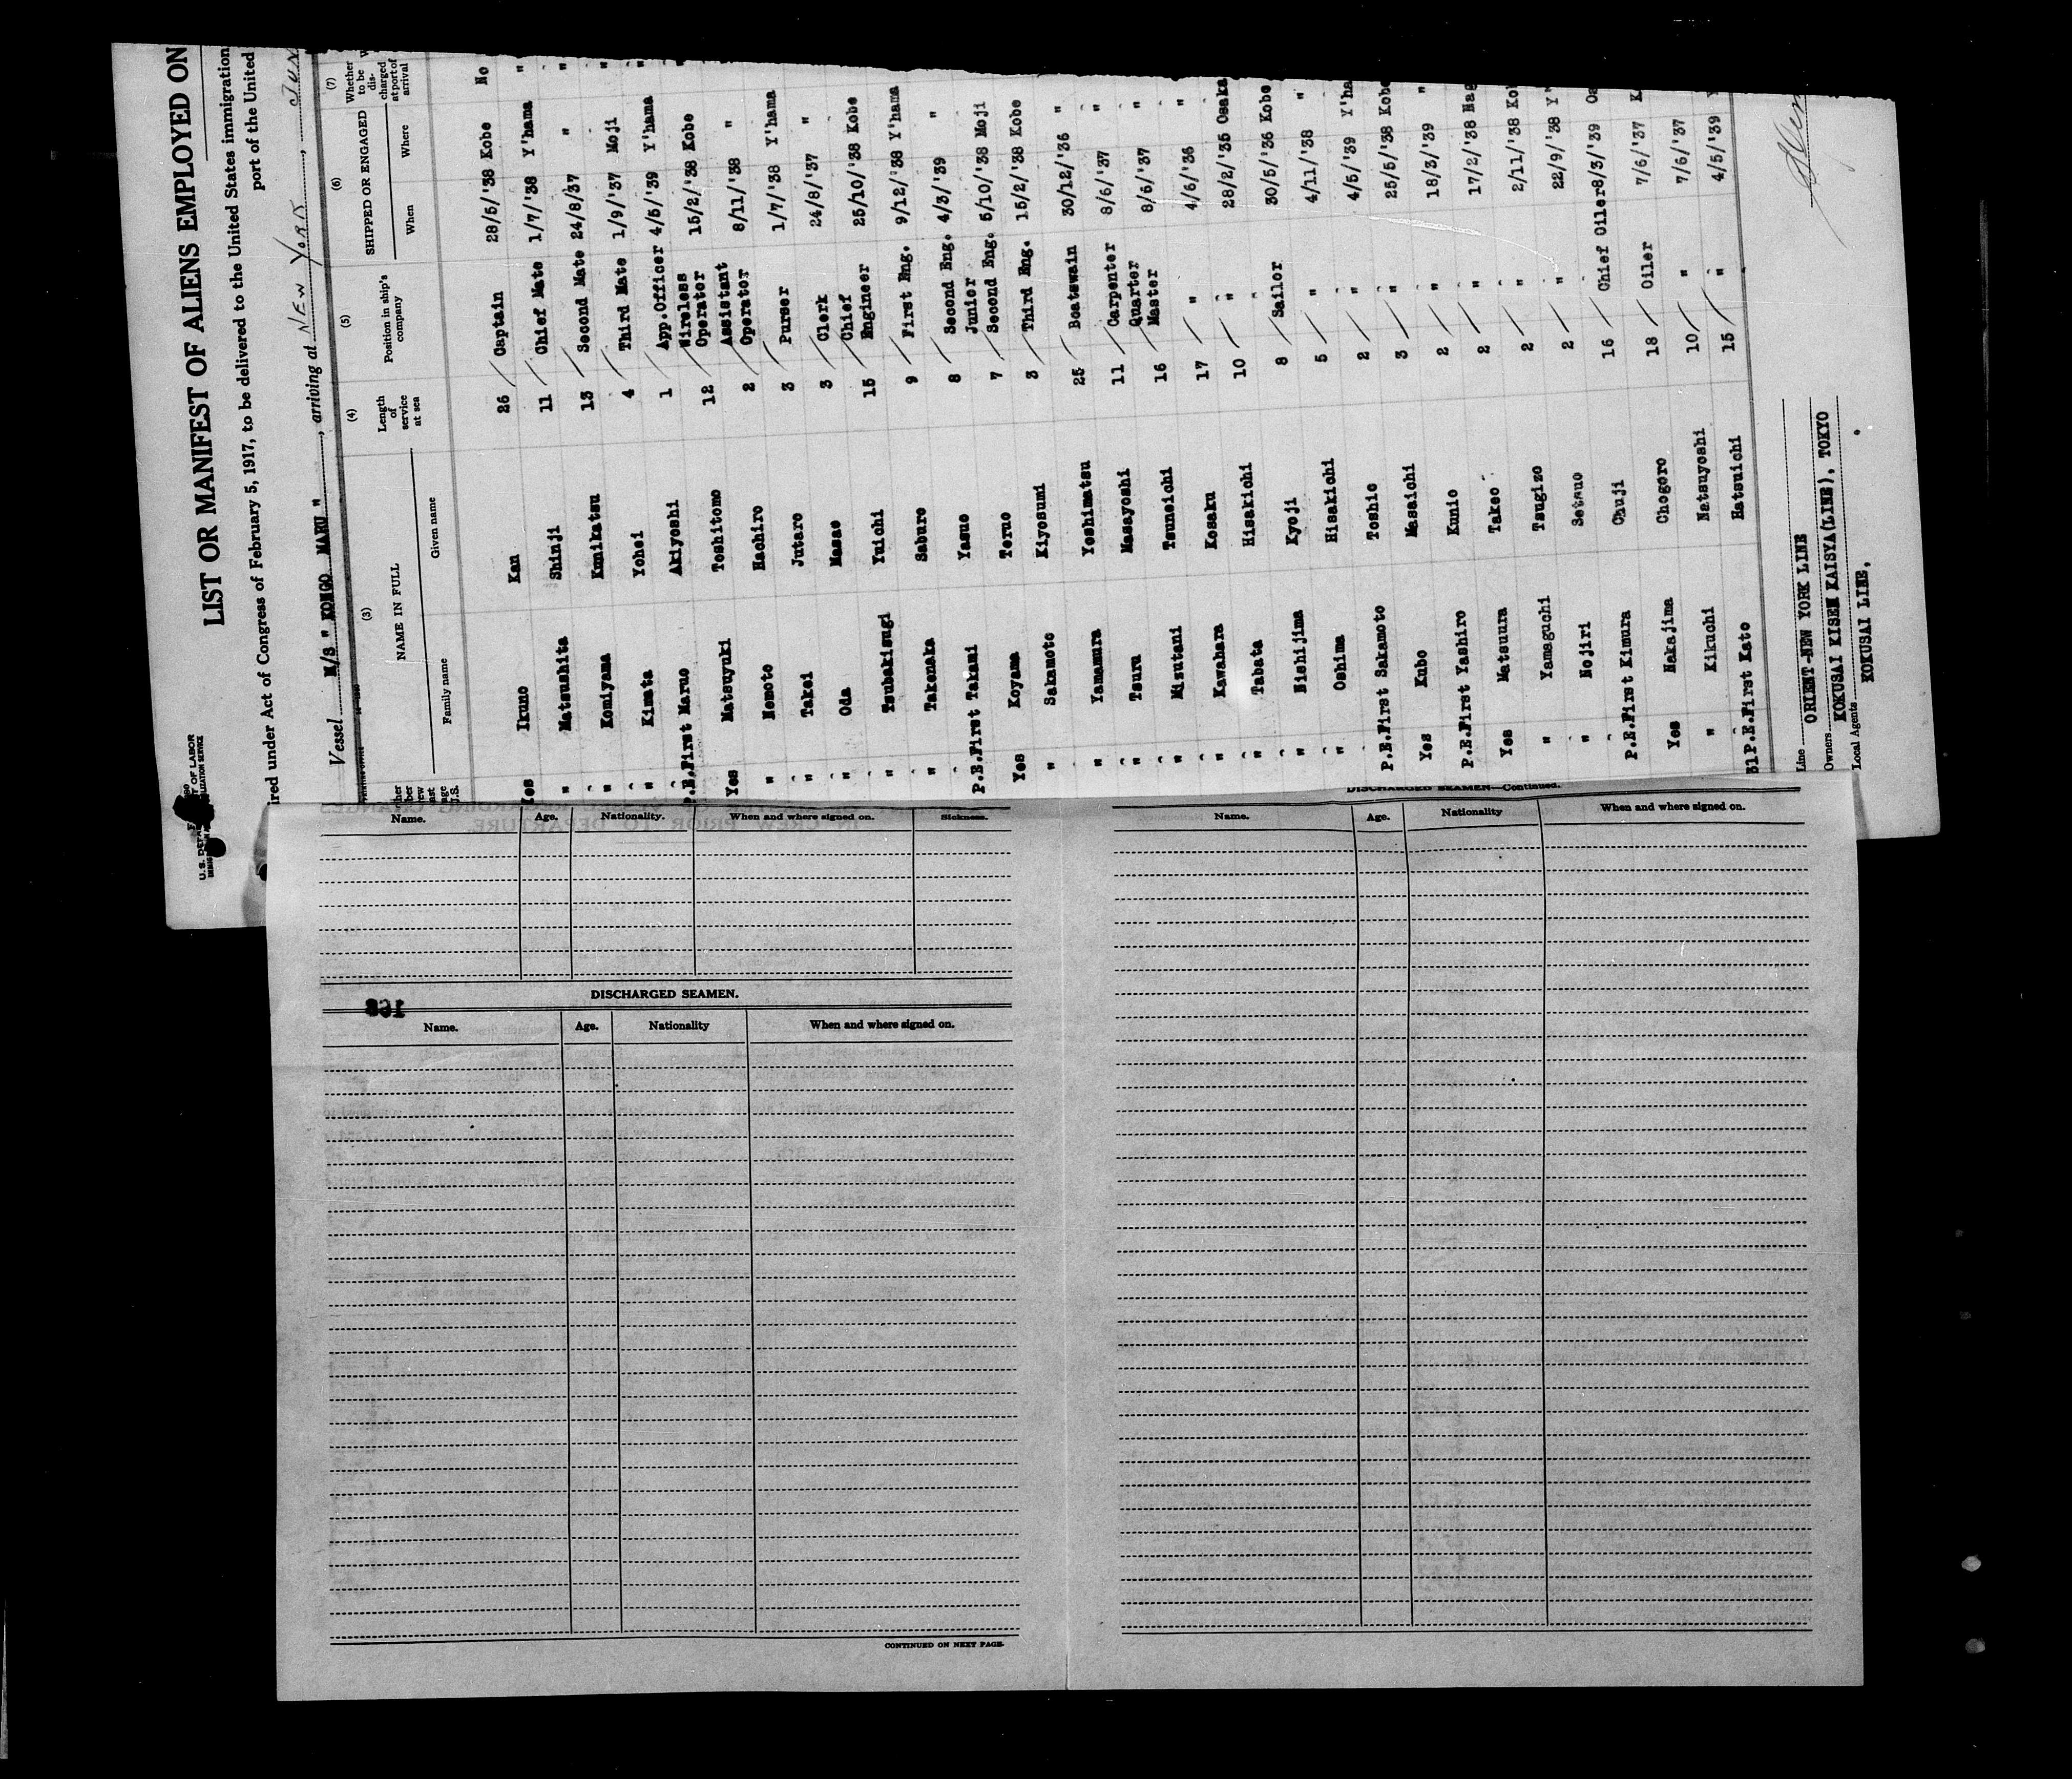 U.S. DEPARTMENT OF LABOR
LIST OR MANIFEST OF ALIENS EMPLOYED ON
ired under Act of Congress of February 5, 1917, to be delivered to the United States immigration
port of the United
Vessel M/S " KONGO MARU ", arriving at NEW YORK, JUN
(3) (4) (5) (6) (7)
NAME IN FULL
Family name Given name
Length of service at sea
Position in ship's company
SHIPPED OR ENGAGED
When Where
Whether to be discharged at port of arrival
Yes Ikuno Kan 26 Captain 28/5/'38 Kobe No
" Matsushita Shinji 11 Chief Mate 1/7/'38 Y'hama "
" Komiyama Kunikatsu 13 Second Mate 24/8/37 " "
" Kimata Yohei 4 Third Mate 1/9/'37 Moji "
P.E.First Maruo Akiyoshi 1 App.Officer 4/5/'39 Y'hama "
Yes Matsuyuki Toshitomo 12 Wireless Operator 15/2/'38 Kobe "
" Nemoto Hachiro 2 Assistant Operator 8/11/'38 "
" Takei Jutaro 3 Purser 1/7/'38 Y'hama
" Oda Masao 3 Clerk 24/8/'37 "
" Tsubakisugi Yuichi 15 Chief Engineer 25/10/'38 Kobe
" Takenaka Saburo 9 First Eng. 9/12/'38 Y'hama
P.E.First Takami Yasuo 8 Second Eng. 4/3/'39 "
Yes Koyama Teruo 7 Junior Second Eng. 5/10/'38 Moji
" Sakamoto Kiyosumi 3 Third Eng. 15/2/'38 Kobe
" Yamamura Yoshimatsu 25 Boatswain 30/12/'36 "
" Tsuru Masayoshi 11 Carpenter 8/6/'37 "
" Mizutani Tsuneichi 16 Quarter Master 8/6/'37 "
" Kawahara Kosaku 17 " 4/6/'36 "
" Tabata Hisakichi 10 " 28/2/'35 Osaka
" Nishijima Kyoji 8 Sailor 30/5/'36 Kobe
" Oshima Hisakichi 5 " 4/11/'38 "
P.E.First Sakamoto Toshio 2 " 4/5/'39 Y'ha
Yes Kubo Masaichi 3 " 25/5/'38 Kobe
P.E.First Yashiro Kunio 2 " 18/3/'39 "
Yes Matsuura Takeo 2 " 17/2/'38 Nag
" Yamaguchi Tsugizo 2 " 2/11/'38 Kob
" Nojiri Setsuo 2 " 22/9/'38 Y'
P.E.First Kimura Chuji 16 Chief Oiler 8/3/'39 Os
Yes Nakajima Chogoro 18 Oiler 7/6/'37 K
" Kikuchi Natsuyoshi 10 " 7/6/'37
31P.E.First Kato Hatsuichi 15 " 4/5/'39 Y
Line ORIENT-NEW YORK LINE
Owners KOKUSAI KISEN KAISYA(LINE), TOKYO
Local Agents KOKUSAI LINE,
Name. Age. Nationality. When and where signed on. Sickness.
DISCHARGED SEAMEN.
Name. Age. Nationality When and where signed on.
CONTINUED ON NEXT PAGE.
DISCHARGED SEAMEN—Continued.
Name. Age. Nationality When and where signed on.